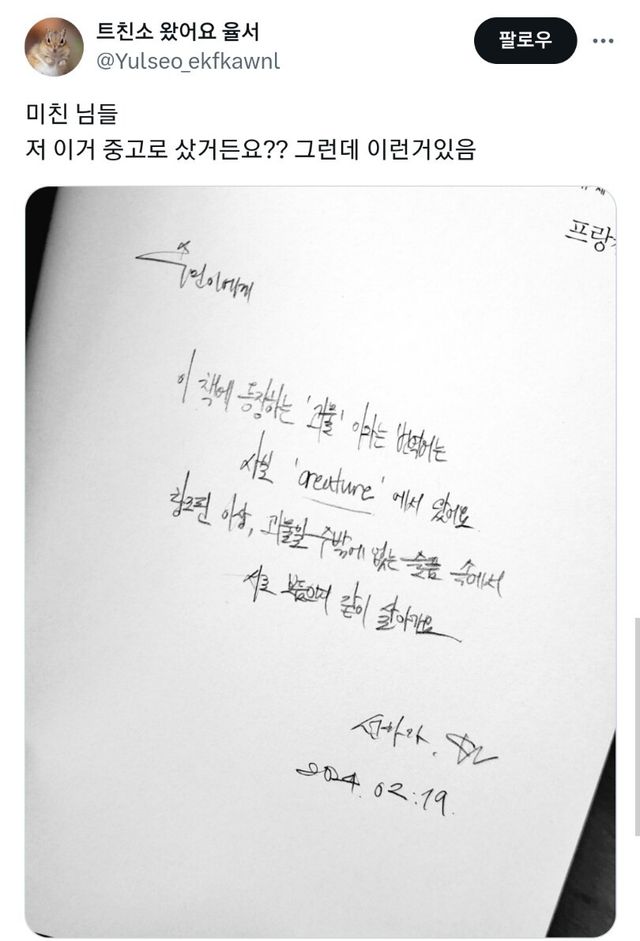 트친소 왔어요 율서
@Yulseo_ekfkawnl
팔로우
미친 님들
저 이거 중고로 샀거든요?? 그런데 이런거있음
프랑
이 책에 등장하는 '괴물' 이라는 번역어는
사실 'creature' 에서 왔어요
창조된 이상, 괴물일 수밖에 없는 슬픔 속에서
서로 보듬으며 같이 살아가요
2024. 02. 19.